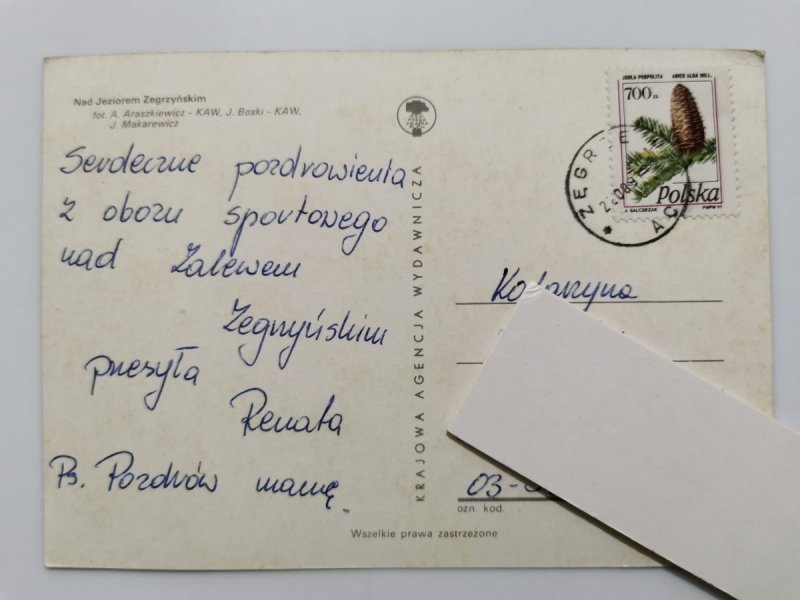 Nad Jeziorem Zegrzyńskim
fot. A. Araszkiewicz - KAW, J. Boski - KAW,
J. Makarewicz
Serdeczne pozdrowienia
z obozu sportowego
nad Zalewem
Zegrzyńskim
przesyła
Renata
Ps. Pozdrów mamę.
KRAJOWA AGENCJA WYDAWNICZA
JODŁA POSPOLITA ABIES ALBA MILL.
700 zł
Polska
A. BALCERZAK PWPW 93
ZEGRZE
Katarzyna
03-
ozn. kod.
Wszelkie prawa zastrzeżone